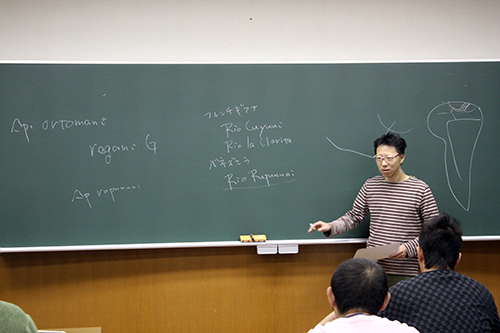 Ap. ortomani
regani G
Ap rupununi
フレンチギアナ
Rio Cuyuni
Rio la Clarita
Rio Rupununi